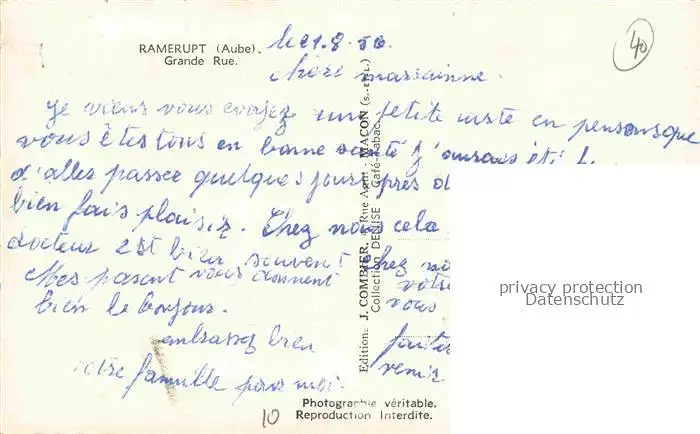 RAMERUPT (Aube).
Grande Rue.
le 21.8.56.
chère marrainne.
je viens vous envoyez une petite carte en pensensque
vous êtes tous en bonne santé j'aurais été
d'allez passer quelques jours près
bien fais plaisir. Chez nous cela
docteur est bien souvent chez
Mes parent vous donnent
bien le bonjour.
embrassez bien
votre famille pour moi.
votre
vous
faites
venir
Edition: J. COMBIER, 4 Rue Agut, MACON (S.-et-L.)
Collection DENISE Café-Tabac
Photographie véritable.
Reproduction Interdite.
40
10
privacy protection
Datenschutz